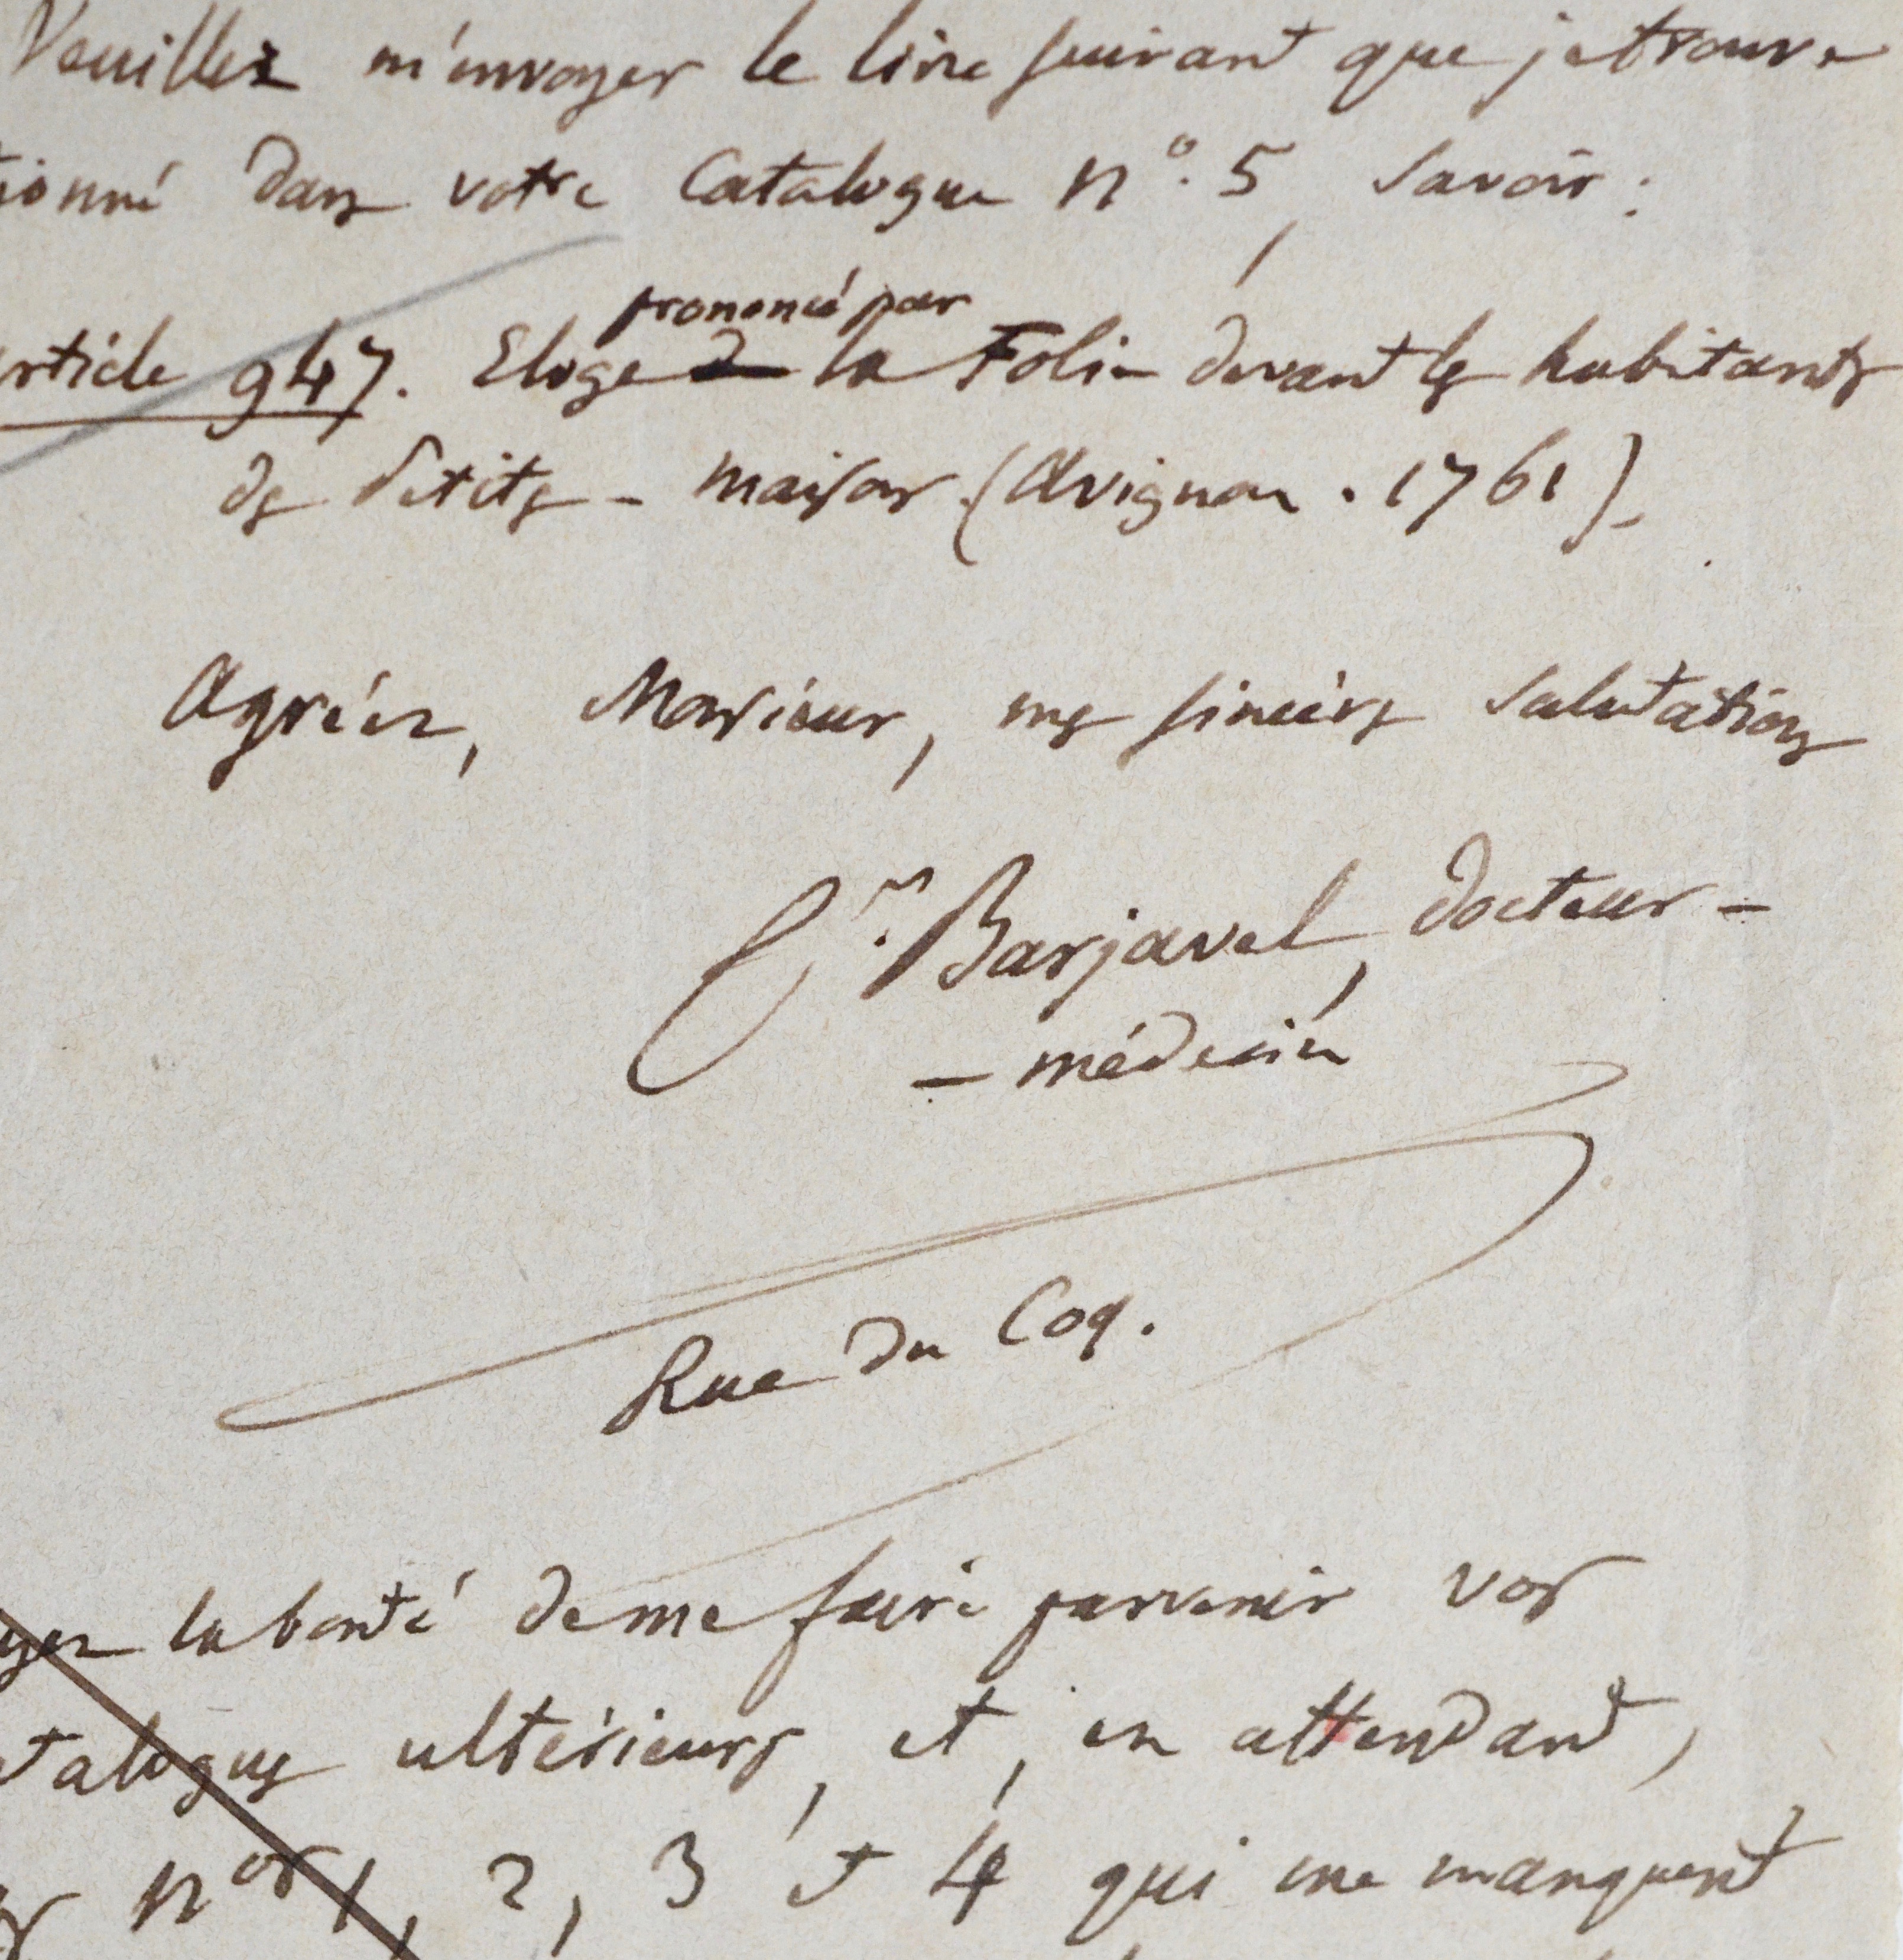 Veuillez m'envoyer le livre suivant que je trouve
tionné dans votre Catalogue n°. 5, savoir :
prononcé par
article 947. Eloge de la Folie devant les habitants
des Petites - maisons (Avignon . 1761).
Agréez, Monsieur, mes sincères salutations
Barjavel, docteur -
- médecin
Rue du Coq.
yez la bonté de me faire parvenir vos
talogues ultérieurs, et, en attendant,
nos 1, 2, 3 et 4 qui me manquent